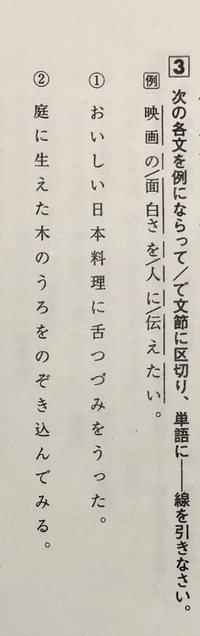 3 次の各文を例にならって／で文節に区切り、単語に――線を引きなさい。
例 映画の／面白さを／人に／伝えたい。
① おいしい日本料理に舌つづみをうった。
② 庭に生えた木のうろをのぞき込んでみる。